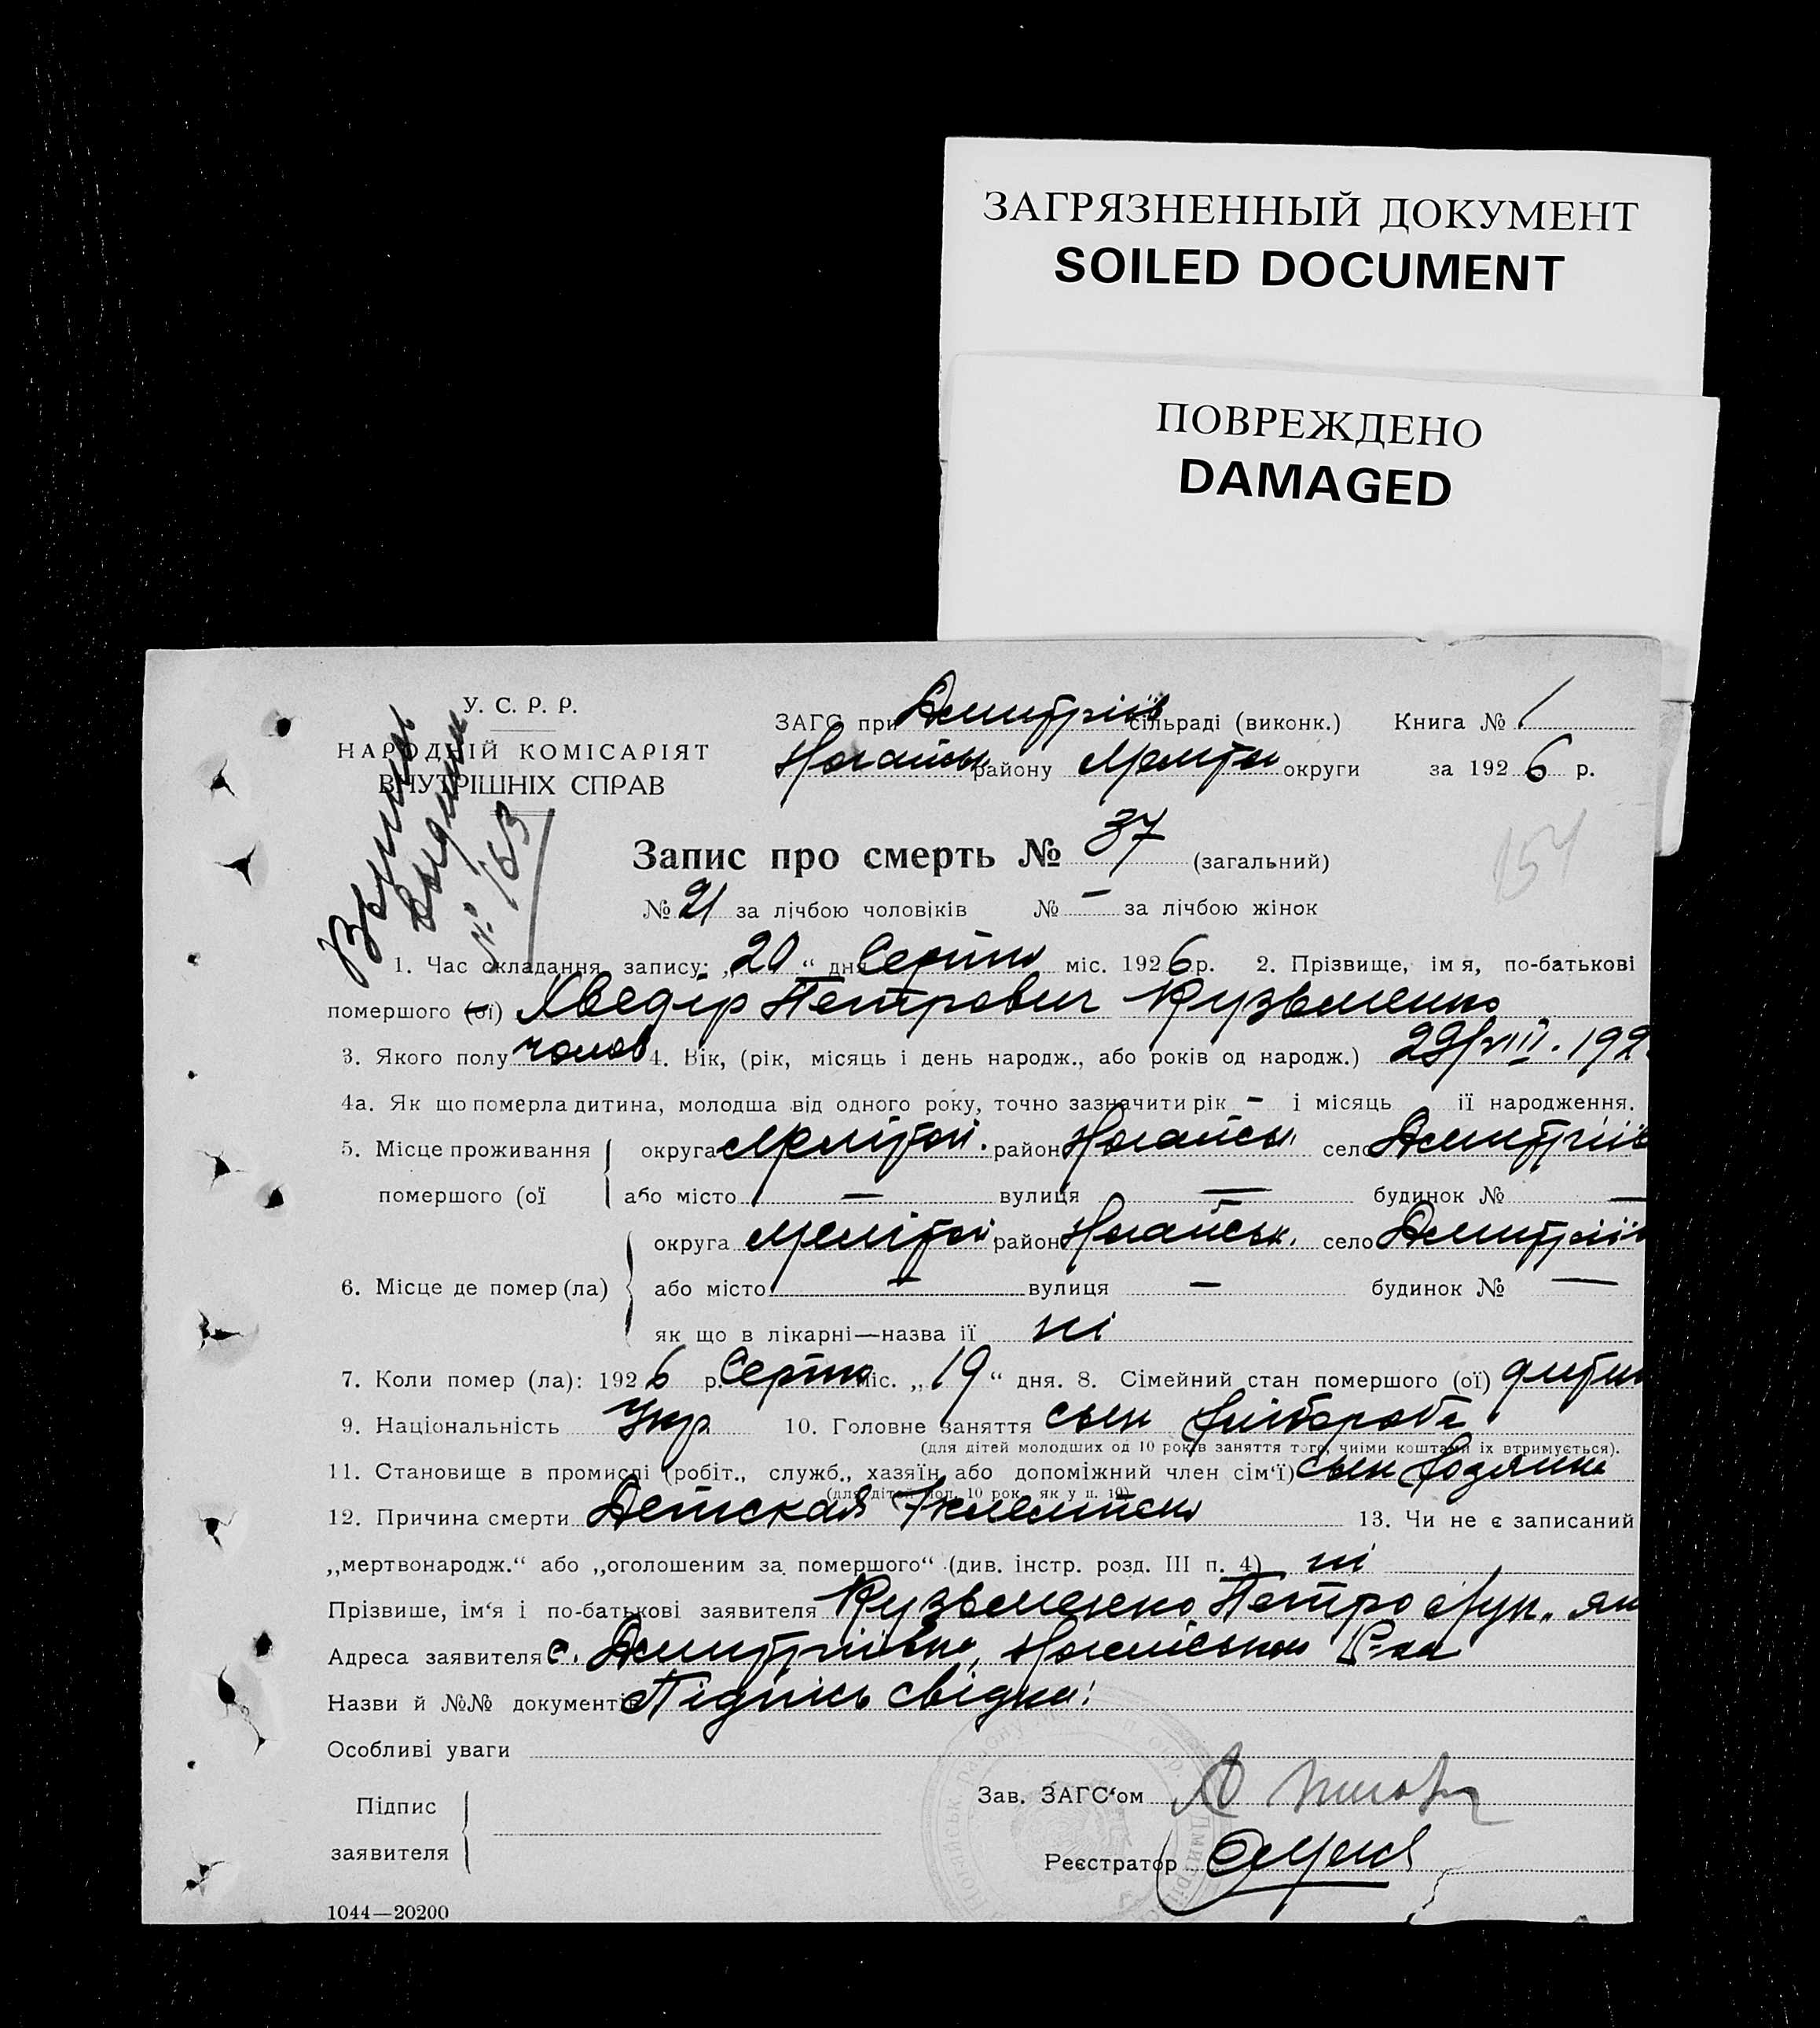 ЗАГРЯЗНЕННЫЙ ДОКУМЕНТ
SOILED DOCUMENT
ПОВРЕЖДЕНО
DAMAGED
У. С. Р. Р.
НАРОДНІЙ КОМІСАРІЯТ
ВНУТРІШНІХ СПРАВ
№ 163
ЗАГС при Дмитріїв сільраді (виконк.) Книга № 1
Ногайськ району Меліт округи за 1926 р.
Запис про смерть № 37 (загальний)
154
№ 21 за лічбою чоловіків № — за лічбою жінок
1. Час складання запису: „20“ дня Серпня міс. 1926 р. 2. Прізвище, ім я, по-батькові
помершого (ої) Хведір Петрович Кузьменко
3. Якого полу чолов 4. Вік, (рік, місяць і день народж., або років од народж.) 29/VIII. 192
4а. Як що померла дитина, молодша від одного року, точно зазначити рік — і місяць її народження.
5. Місце проживання округа Мелітоп. район Ногайськ. село Дмитріїв
помершого (ої або місто — вулиця — будинок № —
округа Мелітоп район Ногайськ. село Дмитрії
6. Місце де помер (ла) або місто — вулиця — будинок № —
як що в лікарні—назва її ні
7. Коли помер (ла): 1926 р. Серпня міс. „19“ дня. 8. Сімейний стан помершого (ої) дитин
9. Національність Укр. 10. Головне заняття сын хлібороба
(для дітей молодших од 10 років заняття того, чиїми коштами їх втримується).
11. Становище в промислі (робіт., служб., хазяїн або допоміжний член сім'ї) сын хозяина
(для дітей мол. 10 рок. як у п. 10)
12. Причина смерти Детская 13. Чи не є записаний
„мертвонародж.“ або „оголошеним за помершого“ (див. інстр. розд. III п. 4) ні
Прізвише, ім'я і по-батькові заявителя Кузьменко Петро
Адреса заявителя с. Дмитріївка, Ногайського Р-на
Назви й №№ документів Підпісь свідка:
Особливі уваги
Підпис
заявителя
Зав. ЗАГС'ом
Реєстратор
1044—20200